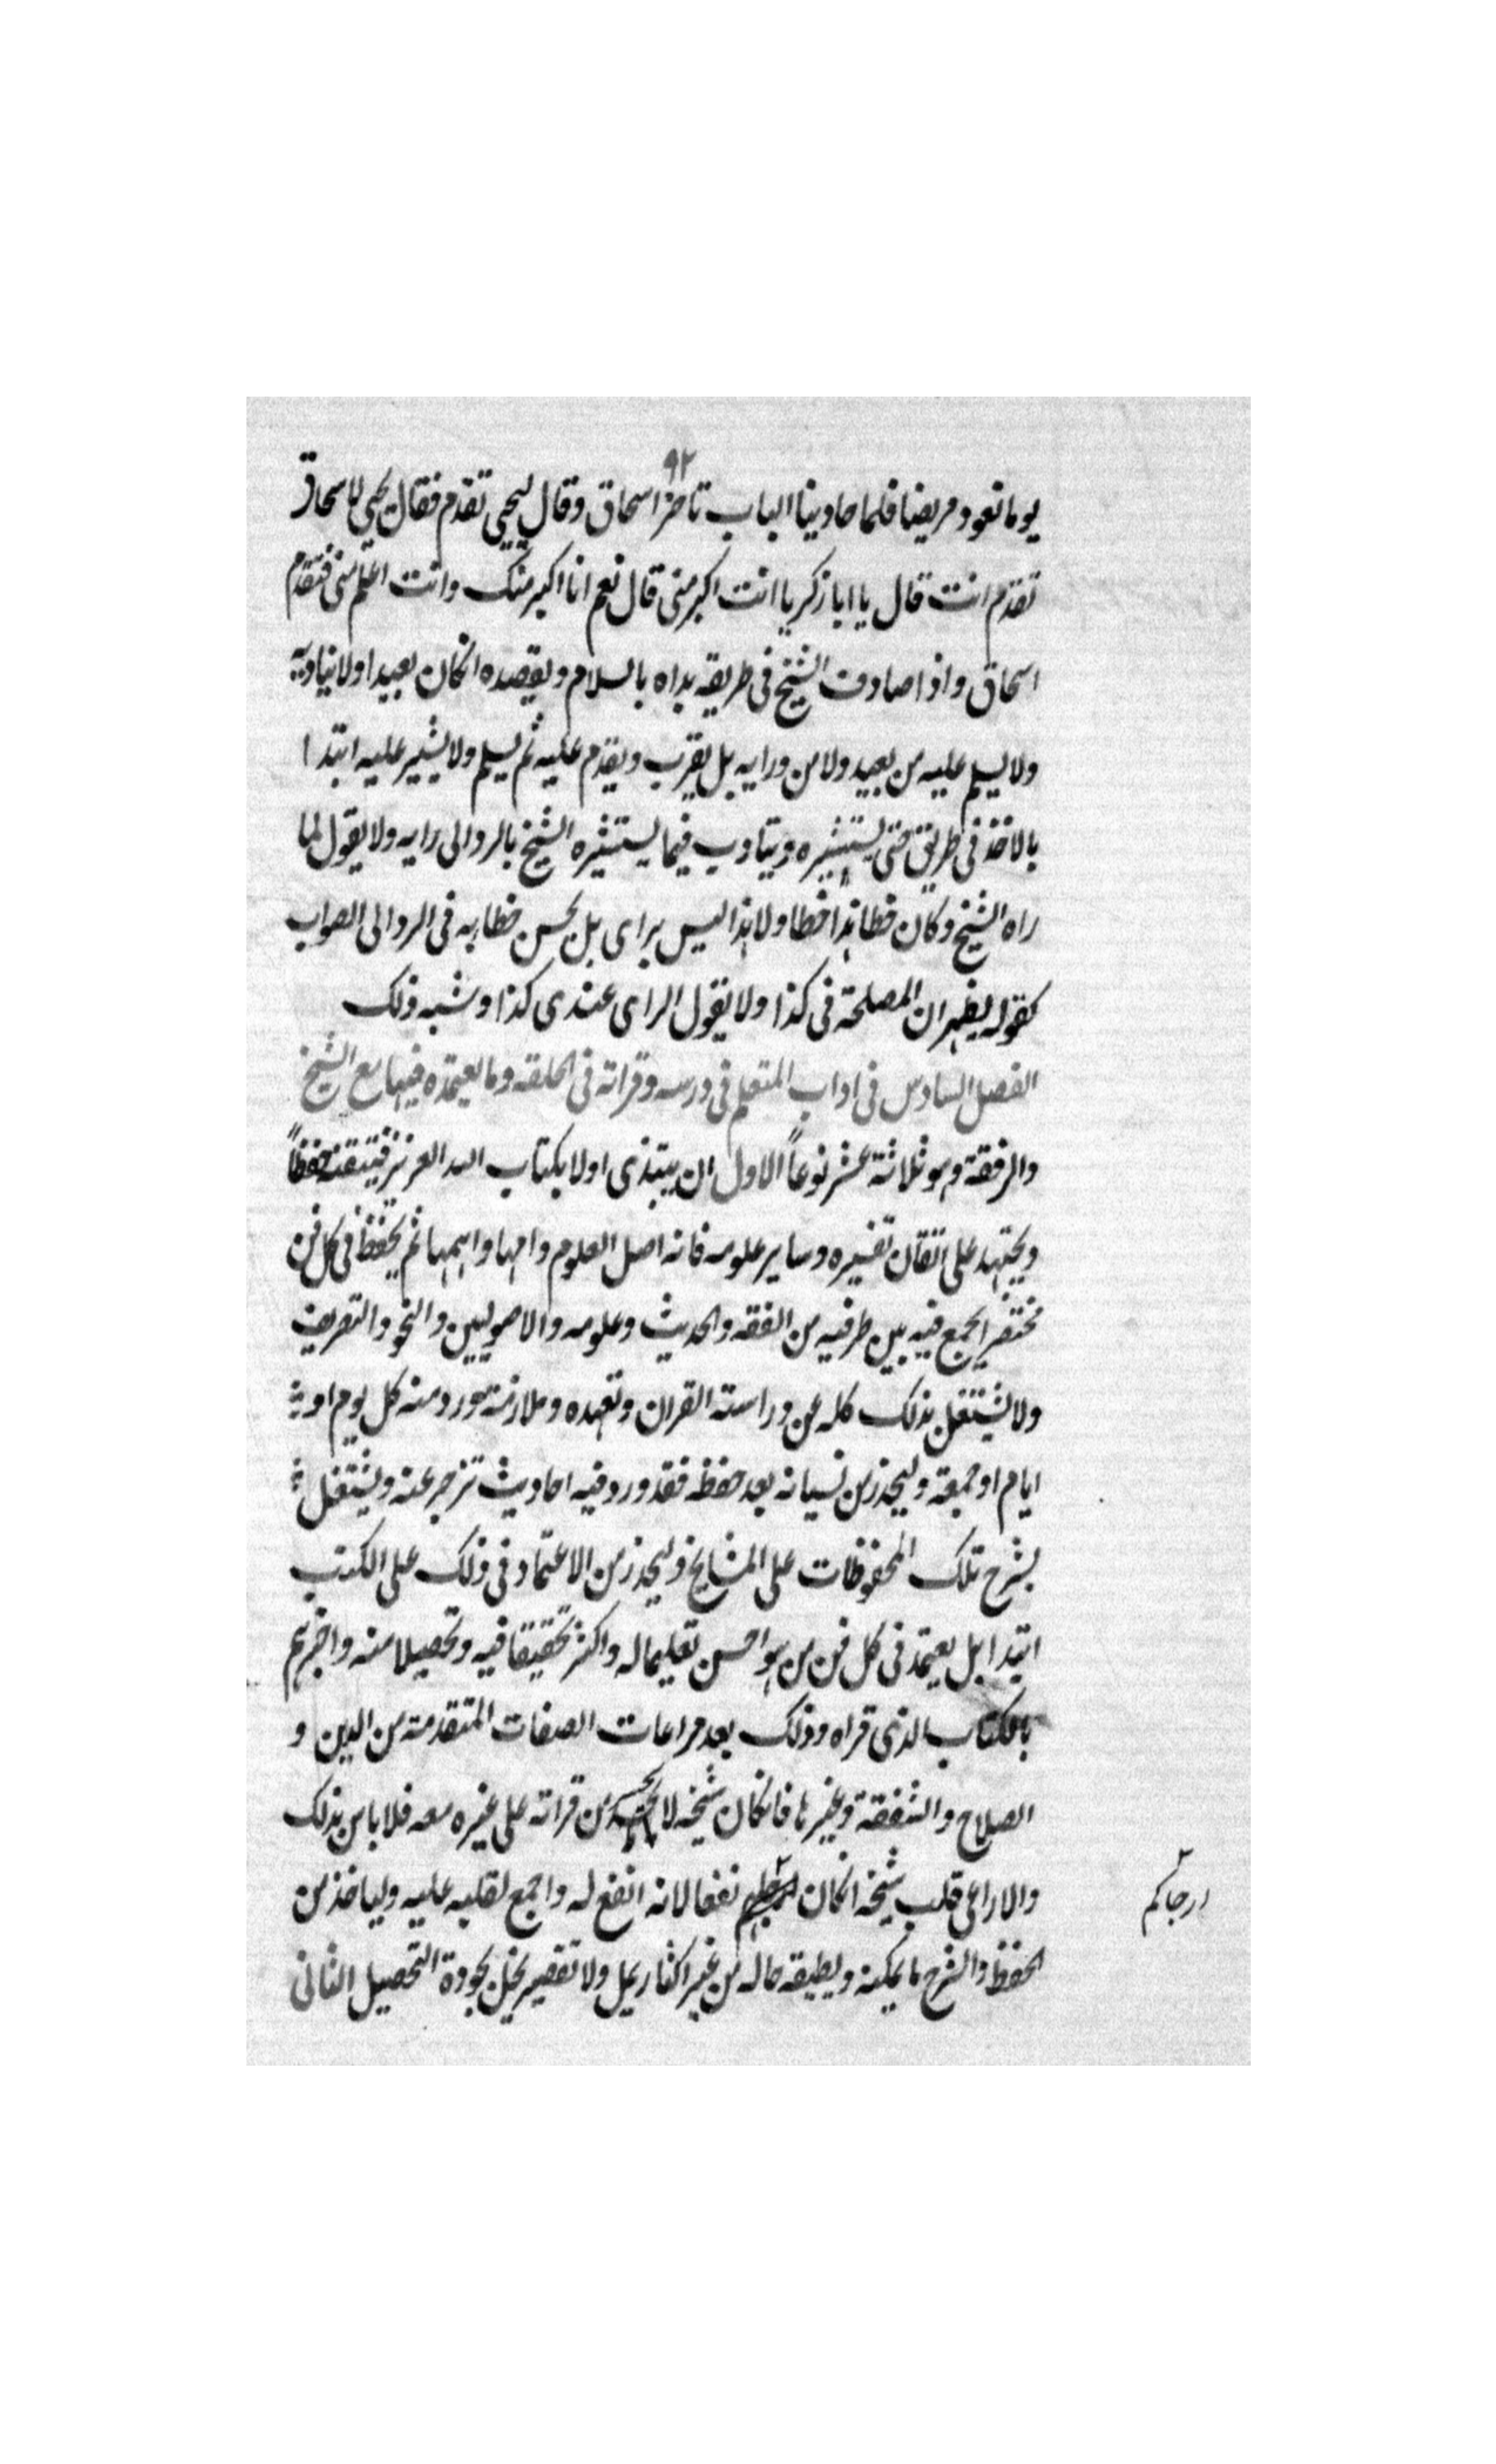 ٩٢
يوما نعود مريضا فلما حاوينا الباب تاخر اسحاق وقال ليحيى تقدم فقال يحيى لاسحاق
تقدم انت قال يا ابا زكريا انت اكبر منى قال نعم انا اكبر منك وانت اعلم منى فتقدم
اسحاق واذا صادف الشيخ فى طريقه بداه بالسلام ويقصده انكان بعيدا ولا يناديه
ولا يسلم عليه من بعيد ولا من ورايه بل يقرب ويقدم عليه ثم يسلم ولا يشير عليه ابتدا
بالاخذ فى طريق حتى يستشيره ويتادب فيما يستشيره الشيخ بالرد الى رايه ولا يقول لما
راه الشيخ وكان خطا هذا خطا ولا هذا ليس براى بل يحسن خطابه فى الرد الى الصواب
كقوله يظهر ان المصلحة فى كذا ولا يقول الراى عندى كذا وشبه ذلك
الفصل السادس فى اداب المتعلم فى درسه وقراته فى الحلقه وما يعتمده فيها مع الشيخ
والرفقة وهو ثلاثة عشر نوعاً الاول ان يبتدى اولا بكتاب الله العزيز فيتقنه حفظاً
ويجتهد على اتقان تفسيره وساير علومه فانه اصل العلوم وامها واهمها ثم يحفظ فى كل فن
مختصر ايجمع فيه بين طرفيه من الفقه والحديث وعلومه والاصوليين والنحو والتصريف
ولا يشتغل بذلك كله عن دراسته القران وتعهده وملازمته ورد منه كل يوم او
ايام او جمعة وليحذر من نسيانه بعد حفظه فقد ورد فيه احاديث تزجر عنه ويشتغل
بشرح تلك المحفوظات على المشايخ وليحذر من الاعتماد فى ذلك على الكتب
ابتدا بل يعتمد فى كل فن من هو احسن تعليما له واكثر تحقيقا فيه وتحصيلا منه واخبرهم
بالكتاب الذى قراه وذلك بعد مراعات الصفات المتقدمة من الدين و
الصلاح والشفقة وغيرها فانكان شيخه لا يجد من قراته على غيره معه فلا باس بذلك
والا راعى قلب شيخه انكان نفعا لانه انفع له واجمع لقلبه عليه ولياخذ من
الحفظ والشرح ما يمكنه ويطيقه حاله من غير اكثار يمل ولا تقصير يخل بجودة التحصيل الثانى
ارجاكم